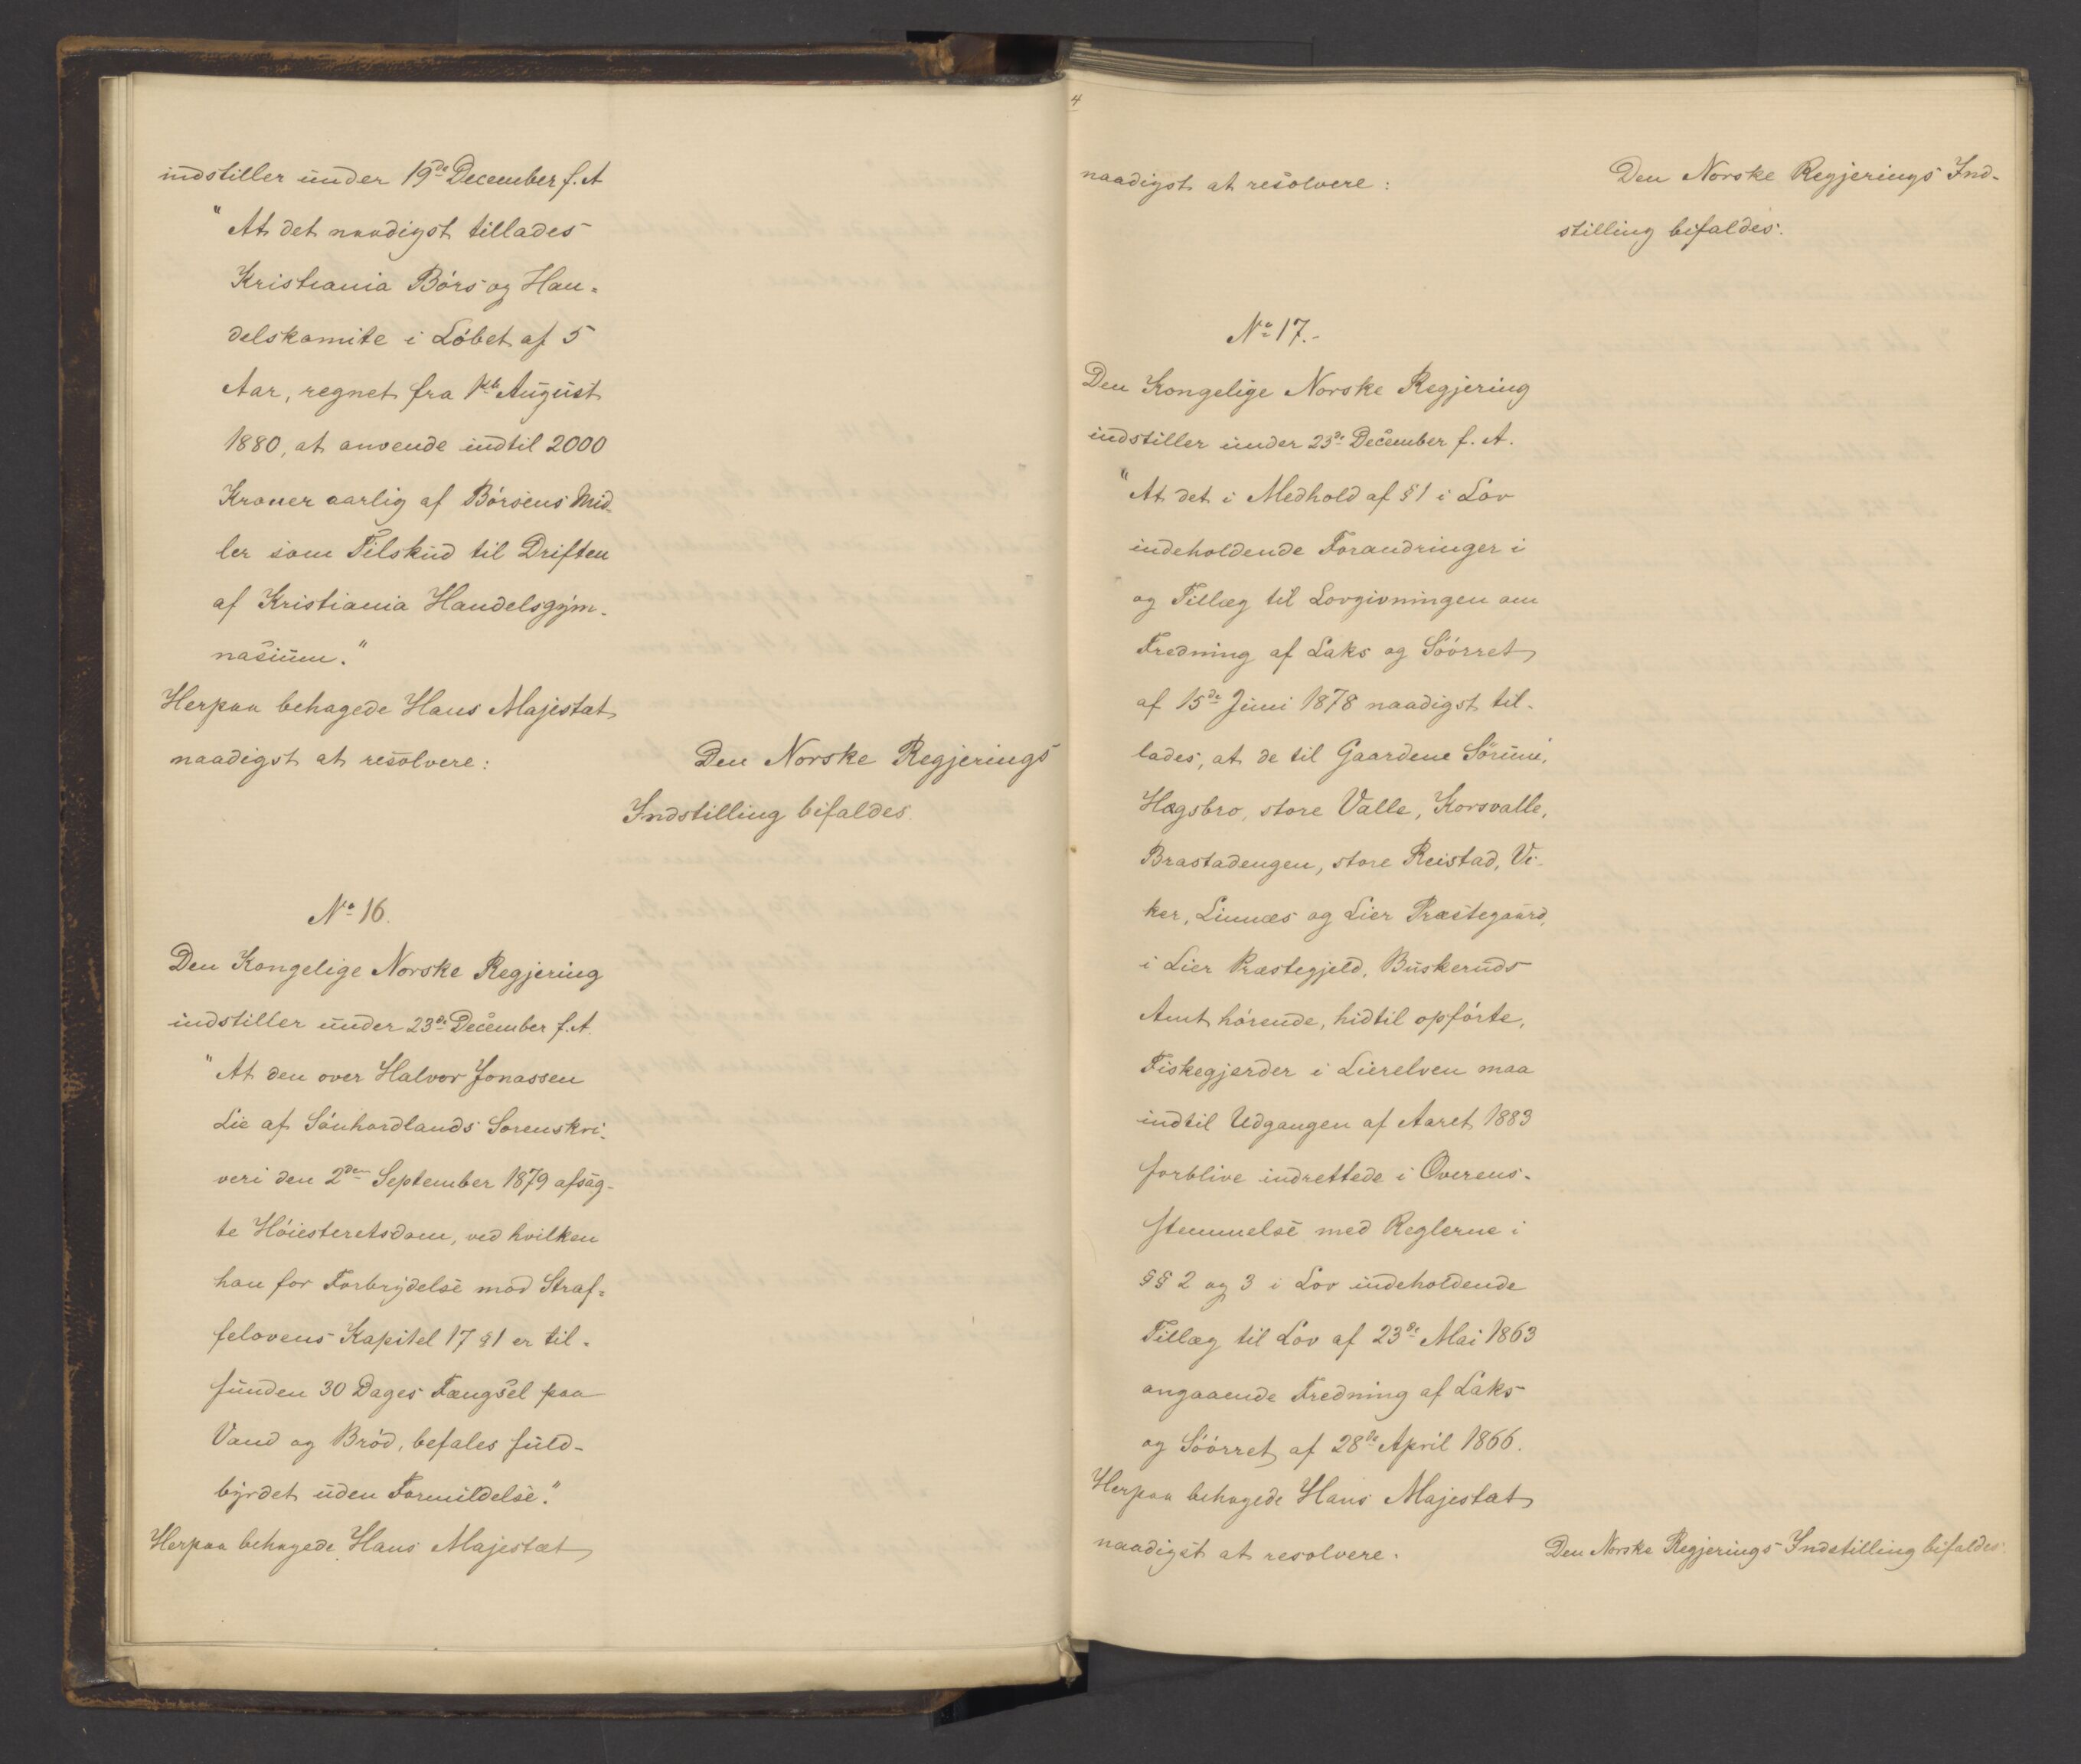 indstiller under 19de December f. A
"At det naadigst tillades
Kristiania Börs og Han-
delskomite i Löbet af 5
Aar, regnet fra 1ste August
1880, at anvende indtil 2000
Kroner aarlig af Börsens Mid-
ler som Tilskud til Driften
af Kristiania Handelsgym-
nasium."
Herpaa behagede Hans Majestæt
naadigst at resolvere:
Den Norske Regjerings
Indstilling bifaldes.
No 16.
Den Kongelige Norske Regjering
indstiller under 23de December f. A.
"At den over Halvor Jonassen
Lie af Sönhordlands Sorenskri-
veri den 2den September 1879 afsag-
te Höiesteretsdom, ved hvilken
han for Forbrydelse mod Straf-
felovens Kapitel 17 § 1 er til-
funden 30 Dages Fængsel paa
Vand og Bröd, befales fuld-
byrdet uden Formildelse."
Herpaa behagede Hans Majestæt
4
naadigst at resolvere:
Den Norske Regjerings Ind-
stilling bifaldes.
No 17.-
Den Kongelige Norske Regjering
indstiller under 23de December f. A.
"At det i Medhold af § 1 i Lov
indeholdende Forandringer i
og Tillæg til Lovgivningen om
Fredning af Laks og Söörret
af 15de Juni 1878 naadigst til-
lades, at de til Gaardene
Hægsbro, store Valle, Korsvalle,
Brastadengen, store Reistad, Vi-
ker, Linnæs og Lier Præstegaard,
i Lier Præstegjeld, Buskeruds
Amt hörende, hidtil opförte,
Fiskegjerder i Lierelven maa
indtil Udgangen af Aaret 1883
forblive indrettede i Overens-
stemmelse med Reglerne i
§§ 2 og 3 i Lov indeholdende
Tillæg til Lov af 23de Mai 1863
angaaende Fredning af Laks
og Söörret af 28de April 1866.
Herpaa behagede Hans Majestæt
naadigst at resolvere.
Den Norske Regjerings Indstilling bifaldes.